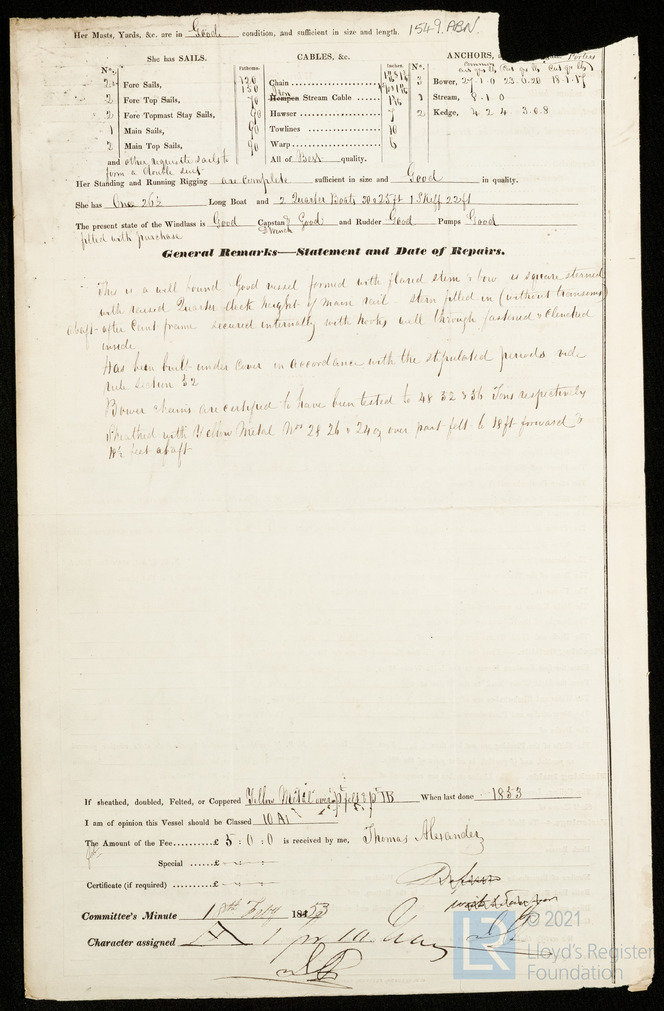 Her Masts, Yards, &c. are in Good condition, and sufficient in size and length. 1549.ABN.
She has SAILS. CABLES, &c. ANCHORS,
N°. Fathoms. Inches. N°.
2 Fore Sails, 120 Chain 3 Bower, 27-1-0 23-0-20 18-1-17
2 Fore Top Sails, Iron Hempen Stream Cable 1 Stream, 8-1-0
2 Fore Topmast Stay Sails, 90 Hawser 7 2 Kedge, 4 2 4 3-0-8
1 Main Sails, 90 Towlines 10
2 Main Top Sails, 90 Warp 6
and other requisite sails to All of Best quality.
form a double suit
Her Standing and Running Rigging are complete sufficient in size and Good in quality.
She has One 26½ Long Boat and 2 Quarter Boats 1 Skiff 22ft
The present state of the Windlass is Good Capstan & Winch Good and Rudder Good Pumps Good
fitted with purchase
General Remarks—Statement and Date of Repairs.
This is a well bound Good vessel formed with flared stem & bow is square sterned
with raised Quarter deck height of main rail stern filled in (without transoms)
abaft after Cant frame secured internally with hooks well through fastened & clenched
inside
Has been built under cover in accordance with the stipulated periods vide
rule section 32
Bower chains are certified to have been tested to 48 32 & 36 Tons respectively
Sheathed with Yellow Metal Nos 28 26 & 24 oz over part felt to 18ft forward &
feet abaft
If sheathed, doubled, Felted, or Coppered Yellow Metal over pt felt & pt TB When last done 1853
I am of opinion this Vessel should be Classed 10 A1
The Amount of the Fee..........£ 5 : 0 : 0 is received by me, Thomas Alexander
Special ......£
Certificate (if required) .......£
Committee's Minute 18th Feby 1853
Character assigned A 1 for 10 Years
© 2021
LR Lloyd's Register
Foundation